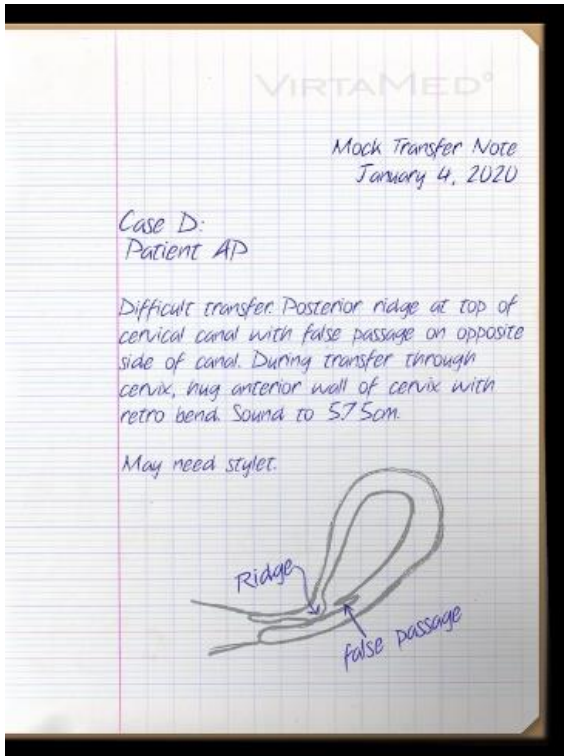 VIRTAMED°
Mock Transfer Note
January 4, 2020
Case D:
Patient AP
Difficult transfer. Posterior ridge at top of
cervical canal with false passage on opposite
side of canal. During transfer through
cervix, hug anterior wall of cervix with
retro bend. Sound to 5.75cm.
May need stylet.
Ridge
false passage